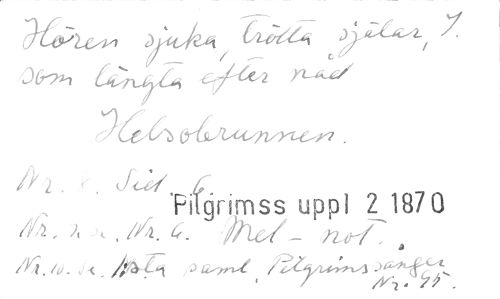 Hören sjuka, trötta själar, I.
som längta efter nåd
Helsobrunnen.
Nr. 8. Sid. 6.
Pilgrimss uppl 2 1870
Nr. Nr. 6. Mel - not.
Nr. 10. 1sta saml. Pilgrimssånger
Nr. 95.